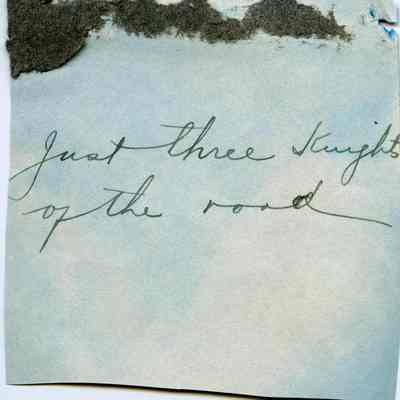 Just three Knights
of the road